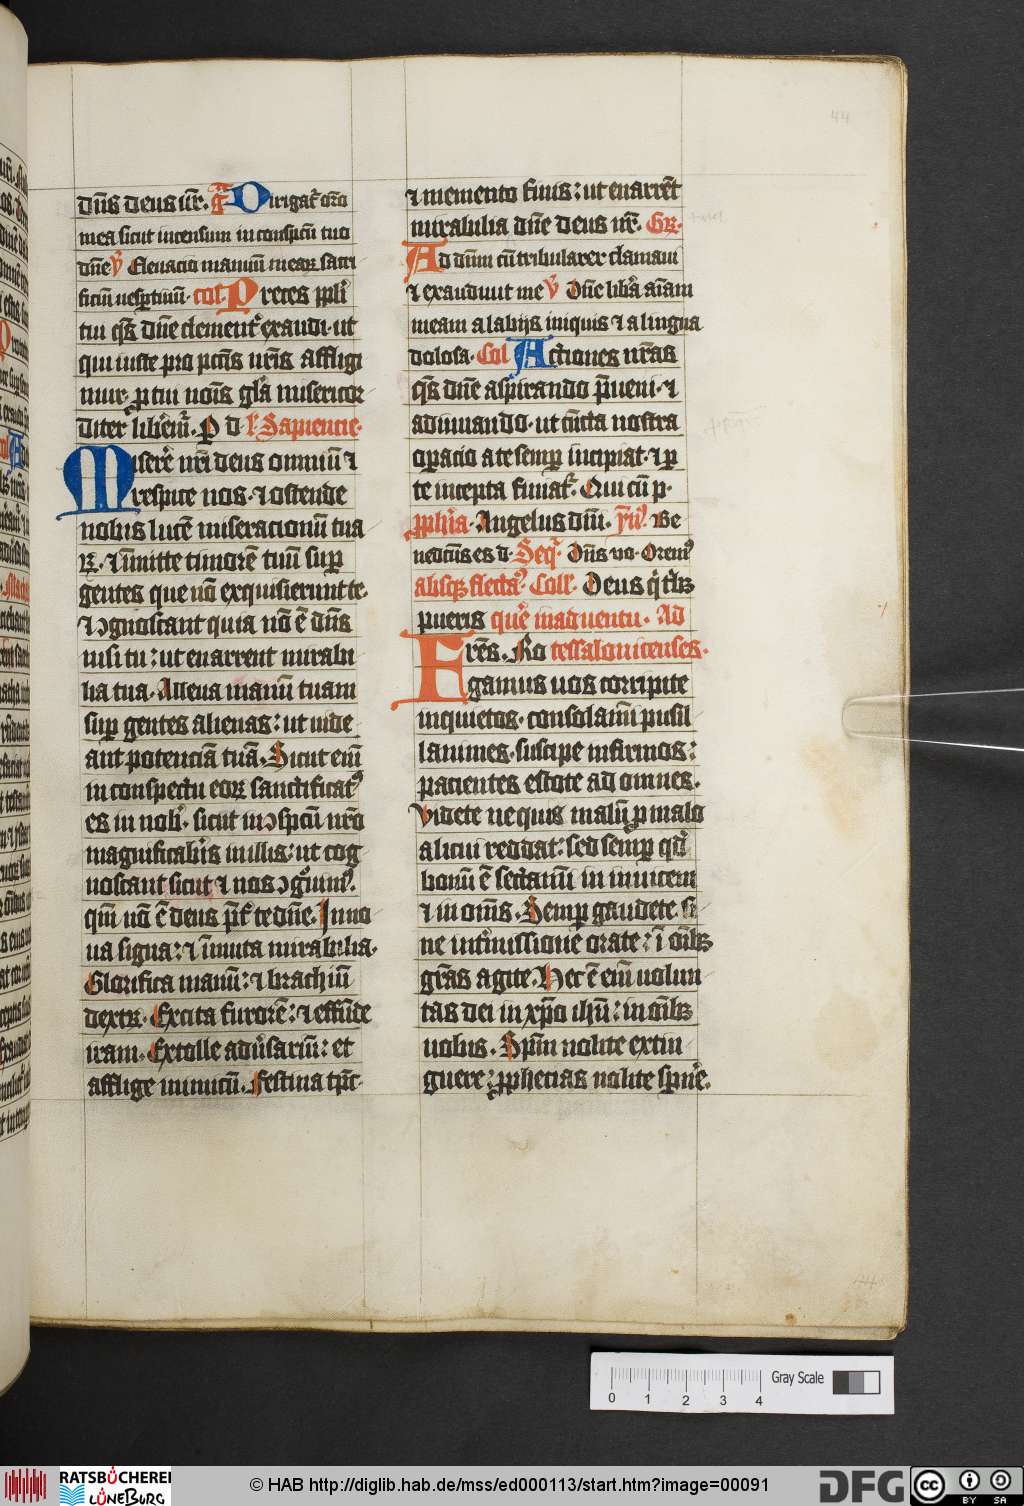 44
dn̄s deus vr̄. Gͣ Dirigat᷑ or̄o
mea sicut incensum in conspc̄u tuo
dn̄e ꝟ Eleuacio manuum mearꝫ sacri
ficiū uesꝑtinū. col Preces ppl̄i
tui qs̄ dn̄e clement᷑ exaudi. ut
qui iuste pro pcc̄is nr̄is affligi
mur. ꝑ tui noīs gl̄a misericor
diter lib̓em̄. P d l̓ Sapiencie.
Miserē nr̄i deus omniū ⁊
respice nos. ⁊ ostende
nobis lucē miseracionū tua
rꝫ. ⁊ īmitte timorē tuū suꝑ
gentes que nō exquisierunt te.
⁊ ↄgnoscant quia nō ē dn̄s
nisi tu: ut enarrent mirabi
lia tua. Alleua manū tuam
suꝑ gentes alienas: ut uide
ant potenciā tuā. Sicut em̄
in conspectu eorꝫ sanctificatꝰ
es in nob̓. sicut in ↄspcū nr̄o
magnificab̓is in illis: ut cog
noscant sicut ⁊ nos ↄgͦuimꝰ.
qm̄ nō ē deus p̄t᷑ te dn̄e. Inno
ua signa: ⁊ īmuta mirabilia.
Glorifica manū: ⁊ brachiū
dextrꝫ. Excita furorē: ⁊ effūde
iram. Extolle adu̓sariū: et
afflige inimicū. Festina tp̄c
⁊ memento finis: ut enarrēt
mirabilia dn̄e deus nr̄. Gr̄.
Ad dn̄m cū tribularer clamaui
⁊ exaudiuit me ꝟ Dn̄e lib̓a aīam
meam a labijs iniquis ⁊ a lingua
dolosa. Col Actiones nr̄as
qs̄ dn̄e aspirando p̄ueni. ⁊
adiuuando. ut cūcta nostra
oꝑacio a te semꝑ incipiat. ⁊ ꝑ
te incepta finiat᷑. Qui cū p.
ꝓph̓ia. Angelus dn̄i. ymꝰ. Be
nedictus es d. Seq᷑. Dn̄s uo. Oremꝰ
absqꝫ flectaꝰ. Coll. Deus qͥ t̓bꝫ
pueris quē̓ in aduentu. Ad
Frēs. Ro tessalonicenses.
gamus uos corripite
inquietos. consolam̄i pusil
lanimes. suscipe infirmos:
pacientes estote ad omnes.
Videte ne quis malū ꝑ malo
alicui reddat: sed semꝑ qd̓
bonū ē sectamīi in inuicem
⁊ in om̄s. Semꝑ gaudete. si
ne int̓missione orate: ī om̄ibꝫ
gr̄as agite. Hec ē em̄ uolun
tas dei in xp̄o ihū: in om̄ibꝫ
uobis. Sp̄m nolite extin
guere: ꝓphecias nolite sꝑn̓e.
44
Gray Scale
0 1 2 3 4
RATSBÜCHEREI LÜNEBURG
© HAB http://diglib.hab.de/mss/ed000113/start.htm?image=00091
DFG
cc BY SA